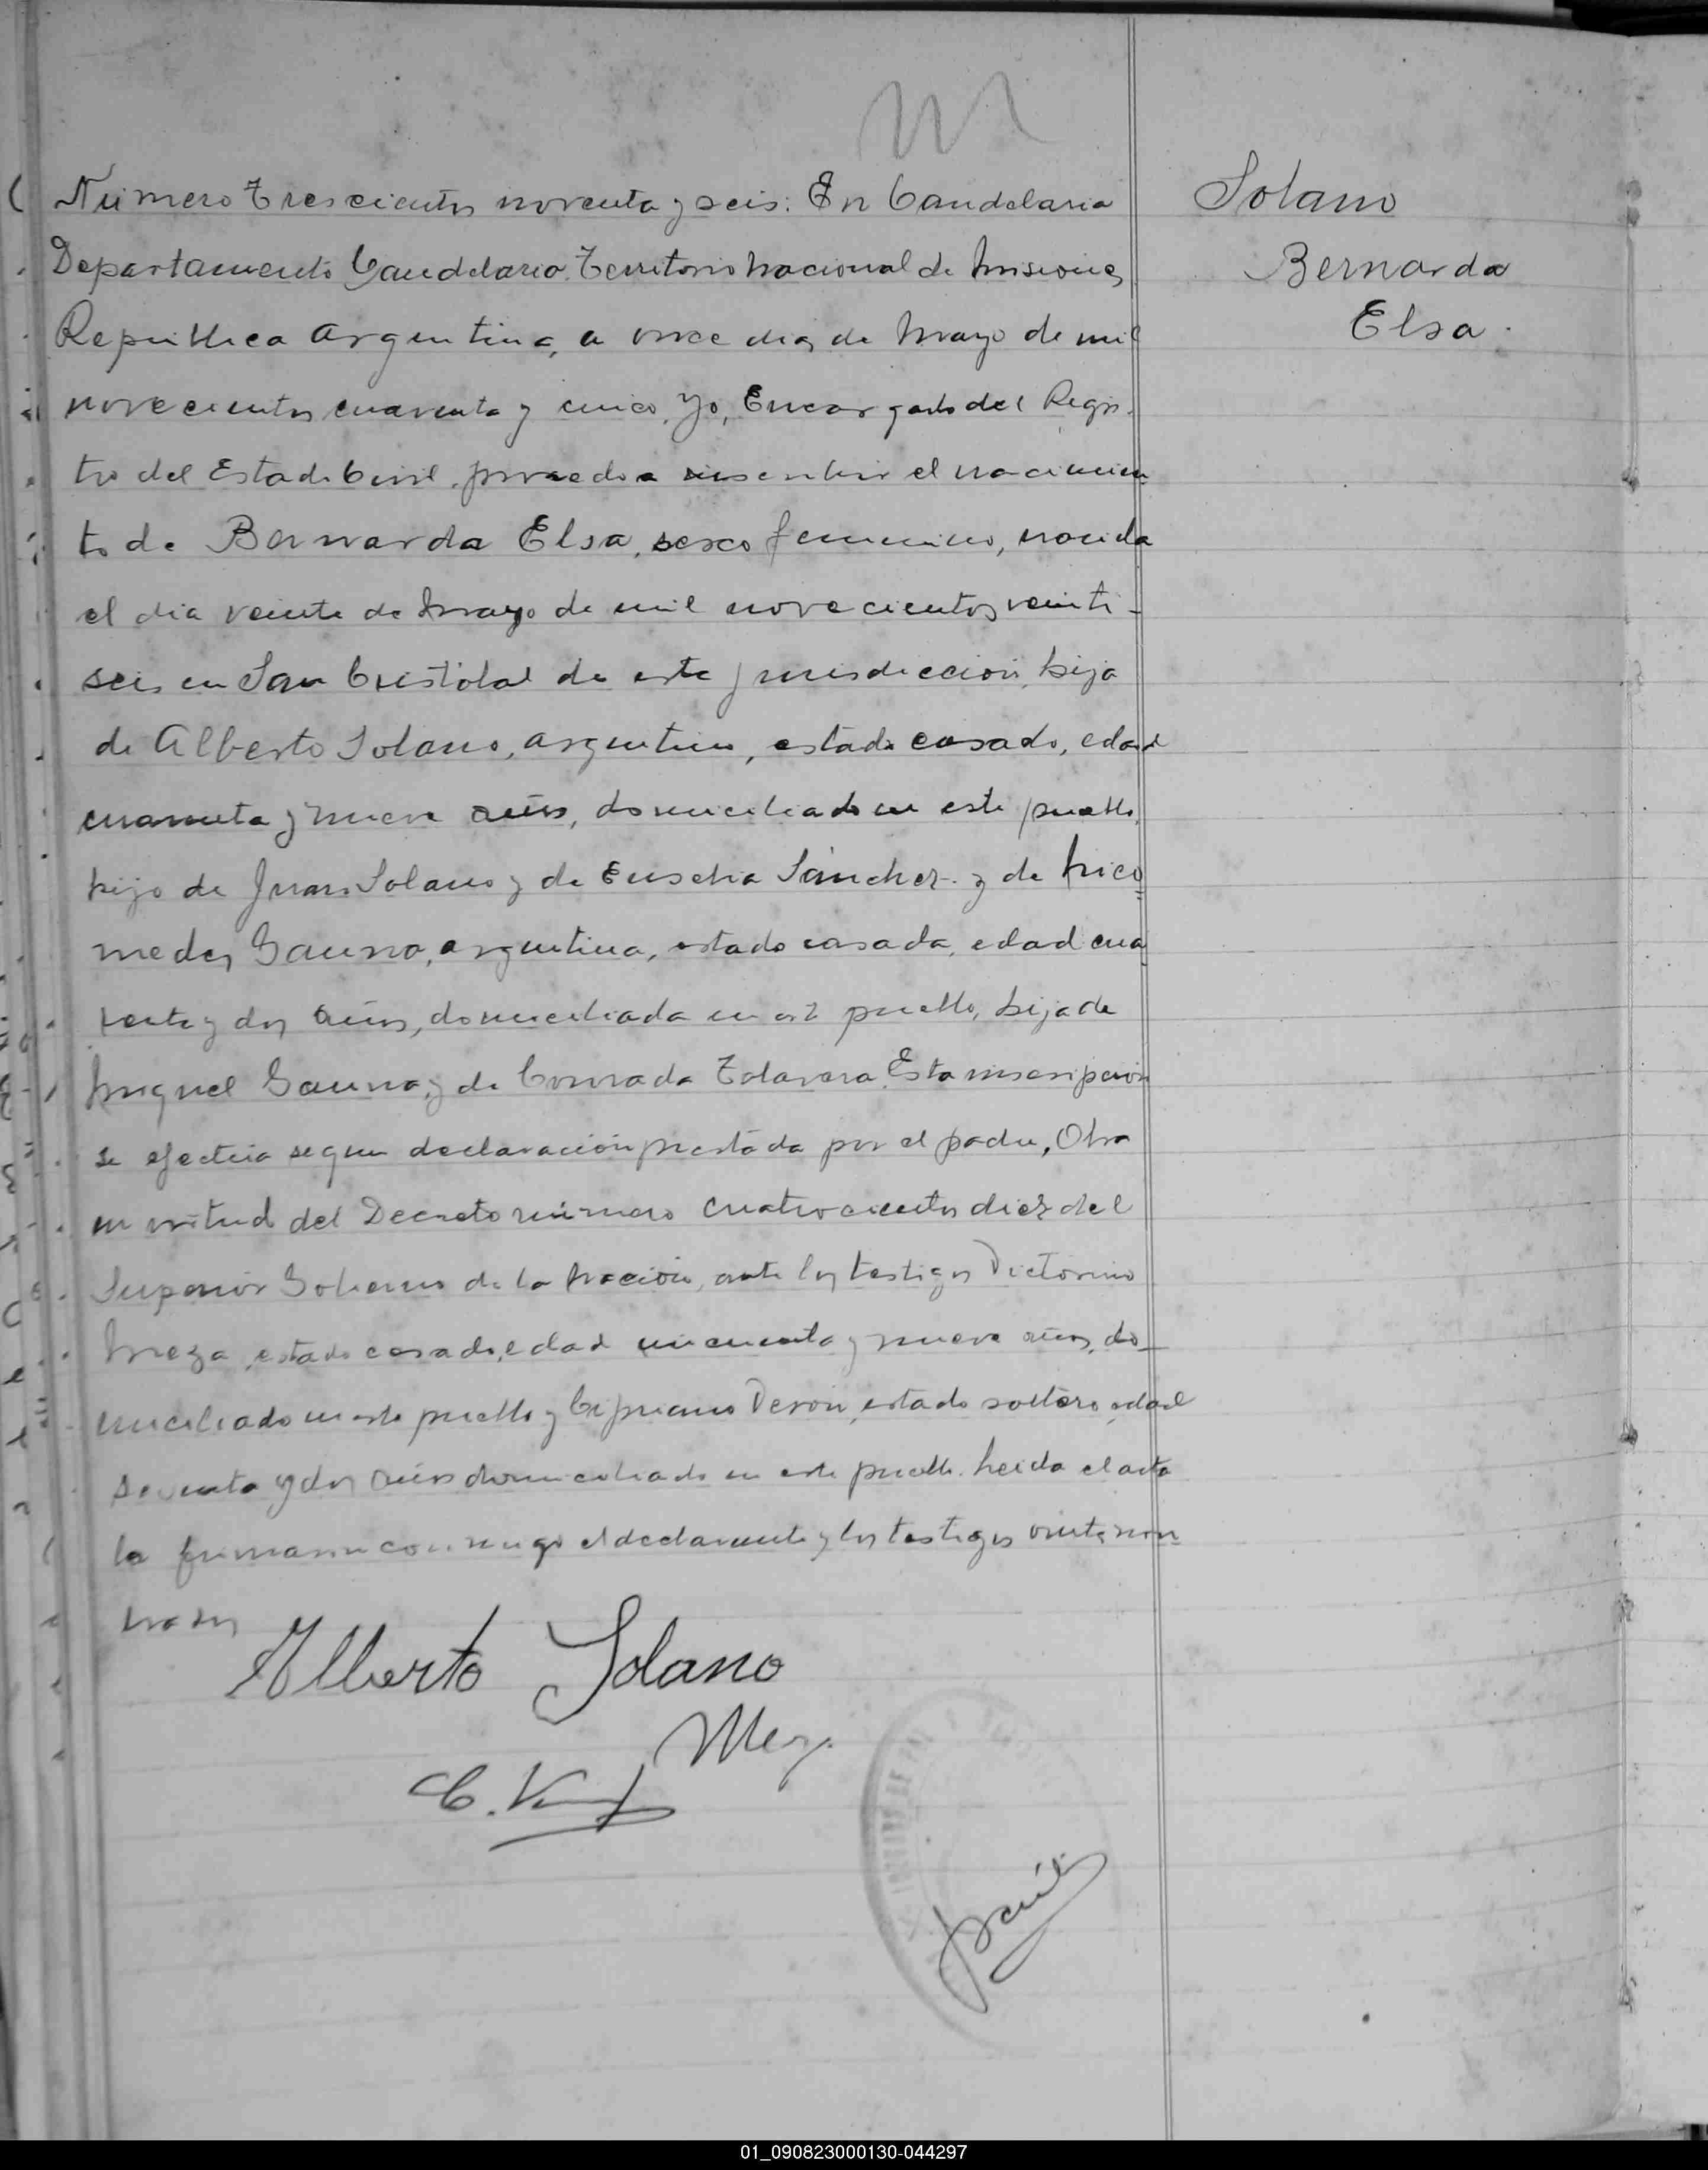 Número Trescientos noventa y seis: En Candelaria
Departamento Candelaria Territorio Nacional de Misiones
República Argentina, a once dias de Mayo de mil
novecientos cuarenta y cinco, Yo, Encargado del Regis-
tro del Estado Civil, procedo a inscribir el nacimien
to de Bernarda Elsa, sexo femenino, nacida
el dia veinte de Mayo de mil novecientos veinti-
seis en San Cristobal de esta jurisdicción, hija
de Alberto Solano, argentino, estado casado, edad
cuarenta y nueve años, domiciliado en este pueblo,
hijo de Juan Solano y de Eusebia Sánchez y de Nico
medes Gauna, argentina, estado casada, edad cua
renta y dos años, domiciliada en este pueblo, hija de
Miguel Gauna, y de Conrada Talavera. Esta inscripción
se efectúa segun declaración prestada por el padre,
en virtud del Decreto número cuatrocientos diez del
Superior Gobierno de la Nación, ante los testigos Victorino
Meza, estado casado, edad cincuenta y nueve años, do-
miciliado en este pueblo y Cipriano Verón, estado soltero, edad
y dos años domiciliado en este pueblo. Leida el acta
la firmaron conmigo el declarante y los testigos

Alberto Solano
Meza
C. V.
Solano
Bernarda
Elsa.
01_090823000130-044297